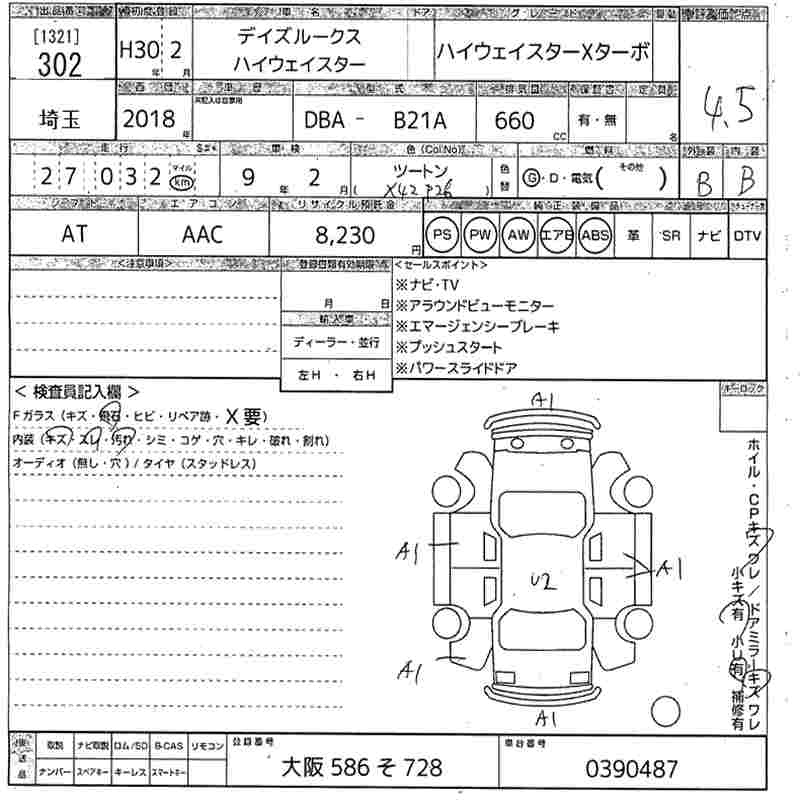 出品番号 初度登録 車名 ドア グレード 評価点
[1321]
302
H30年 2月
デイズルークス
ハイウェイスター
ハイウェイスターXターボ
4.5
埼玉
2018年
型式 排気量
DBA - B21A
660 cc
有・無
名
走行 車検 色(Col No) 燃料 外装 内装
27032 マイル km
9年 2月
ツートン
色替
G・D・電気( その他 )
B B
シフト エアコン リサイクル預託金 純正装備品
AT AAC 8,230円
PS PW AW エアB ABS 革 SR ナビ DTV
<注意事項>
登録書類有効期限
月 日
輸入車
ディーラー・並行
左H ・ 右H
<セールスポイント>
※ナビ・TV
※アラウンドビューモニター
※エマージェンシーブレーキ
※プッシュスタート
※パワースライドドア
< 検査員記入欄 >
Fガラス(キズ・飛石・ヒビ・リペア跡・X要)
内装(キズ・スレ・汚れ・シミ・コゲ・穴・キレ・破れ・割れ)
オーディオ(無し・穴)/タイヤ(スタッドレス)
キーロック
A1
A1
A1
U2
A1
A1
ホイル・CPキズワレ/ドアミラーキズワレ
小キズ有 小U有 補修有
後送品
取説 ナビ取説 ロム/SD B-CAS リモコン
ナンバー スペアキー キーレス スマートキー
登録番号
大阪 586 そ 728
車台番号
0390487